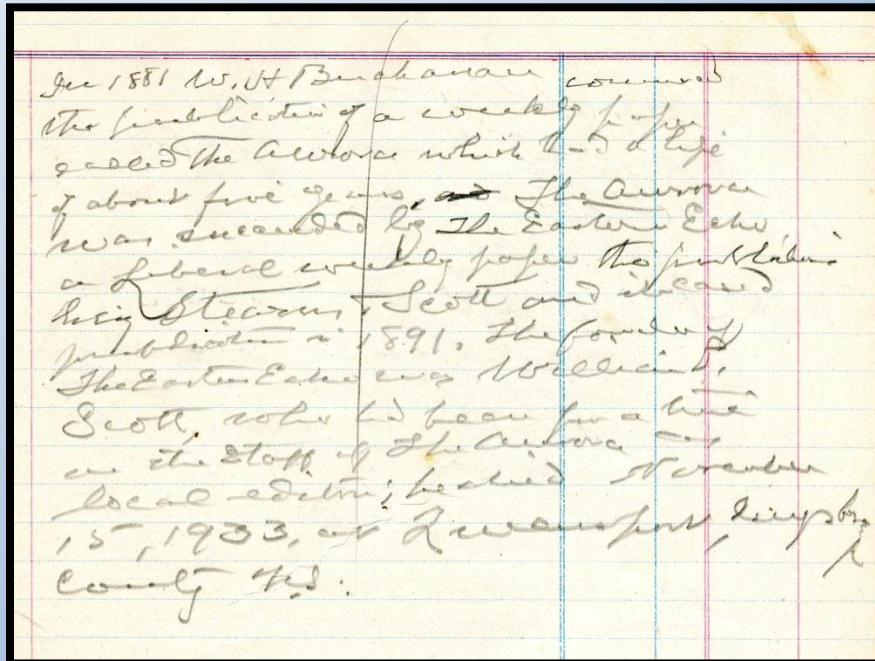 In 1881 W. H Buchanan commenced
the publication of a weekly paper
called The Aurora which had a life
of about five years, The Aurora
was succeeded by The Eastern Echo,
a Liberal weekly paper the publishers
being Stearns & Scott and it ceased
publication in 1891. The founder of
The Eastern Echo was William D.
Scott, who had been for a time
on the staff of The Aurora as
local editor; he died November
15, 1933, at Queensport, Guysboro
County N.S.